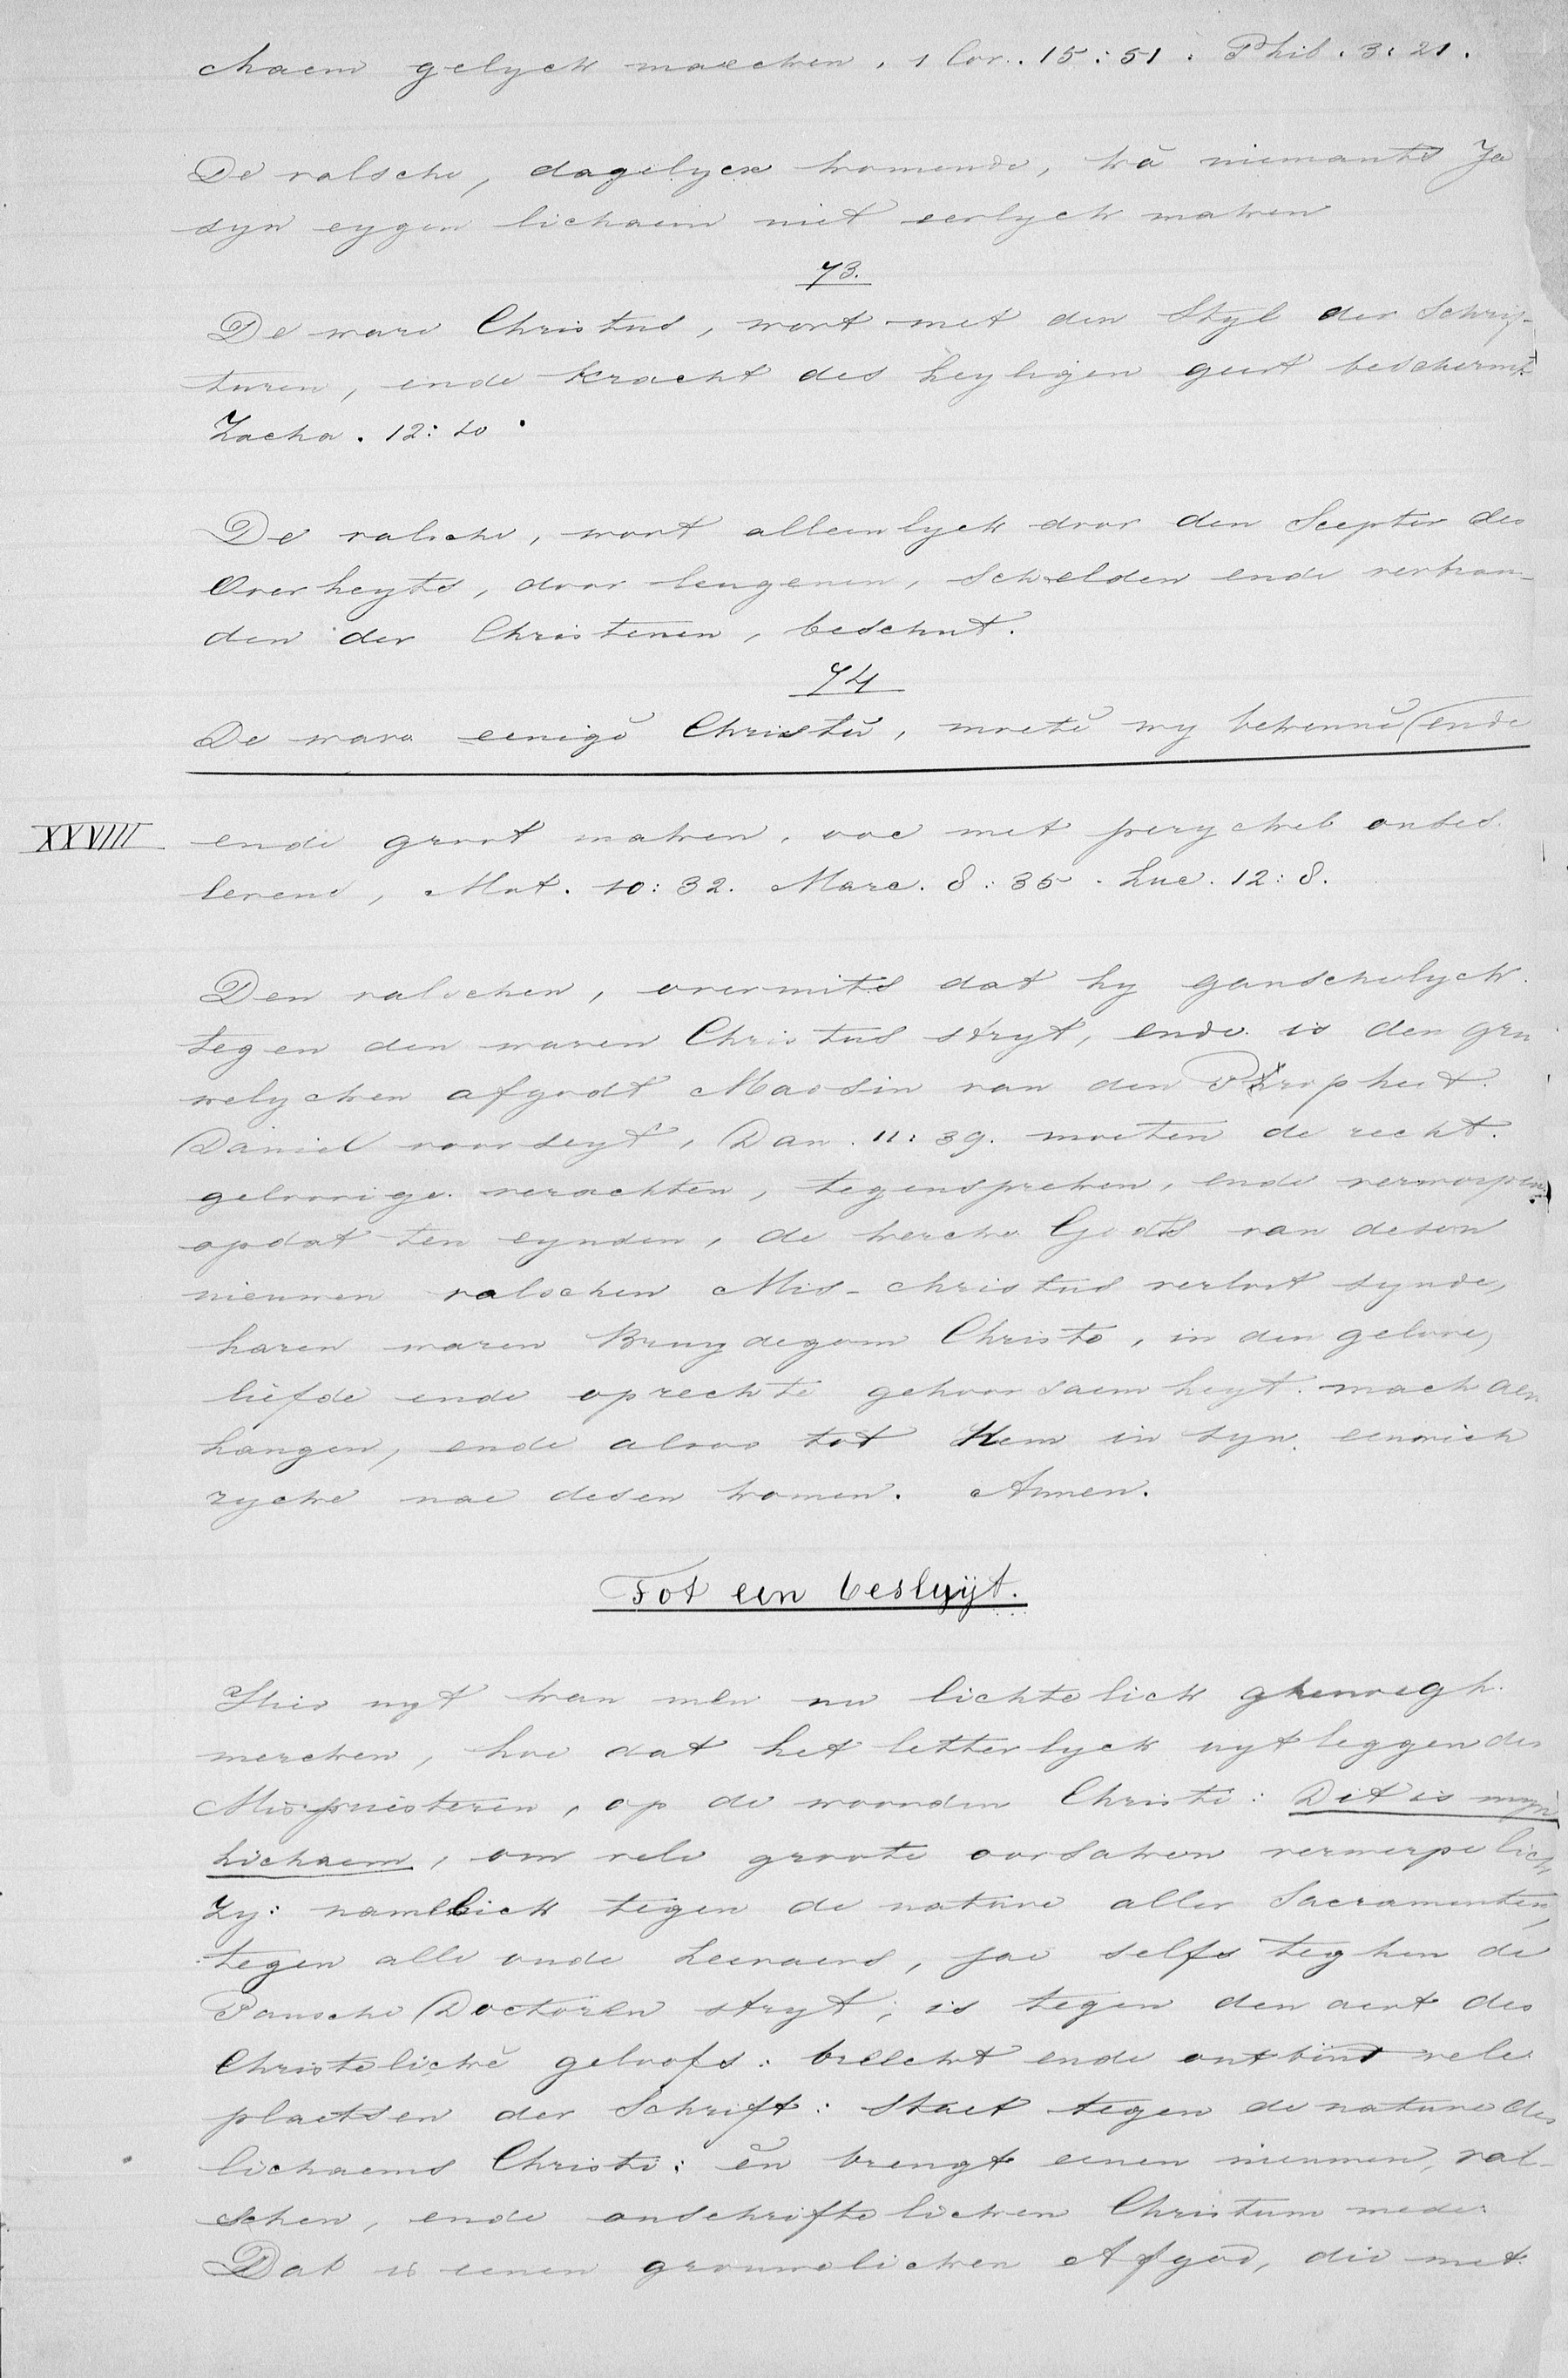 chaem gelyck maecken, 1 Cor. 15:51. Phil. 3:21.
De valsche, dagelycx komende, kā niemants Ja
syn eygen lichaem niet eerlyck maken
73.
De ware Christus, wort met den Styl der Schrif-
turen, ende kracht des heyligen geest beschermt
Zacha. 12:10.
De valsche, wort alleenlyck door den Scepter der
Overheyts, door leugenen, Schelden ende verbran-
den der Christenen, beschut.
74
De ware eenigē Christū, moetē wy bekennē (ende
XXVIII ende groot maken, ooc met peryckel onses
levens, Mat. 10:32. Marc. 8:35. Luc. 12:8.
Den valschen, overmits dat hy ganschelyck
tegen den waren Christus stryt, ende is den gru
welycken afgodt Maosin van den Propheet
Daniel voorseyt, Dan. 11:39. moeten de recht.
geloovige verachten, tegenspreken, ende verworpen
opdat ten eynden, de kercke Godts van desen
nieuwen valschen Mis-christus verlost synde,
haren waren Bruydegom Christo, in den gelove,
liefde ende oprechte gehoorsaemheyt mach aen
hangen, ende alsoo tot Hem in syn eewich
rycke nae desen komen. Amen.
Tot een besluyt.
Hier uyt kan men nu lichtelick ghenoegh
mercken, hoe dat het letterlyck uytleggen des
Mispriesteren, op de woorden Christi: Dit is myn
lichaem, om vele groote oorsaken verwerpelick
Zy: namelick tegen de nature aller Sacramenten,
tegen alle oude Leeraers, jae selfs teghen de
Pausche Doctoren stryt; is tegen den aert des
Christelickē geloofs: breeckt ende ontbint vele
plaetsen der Schrift: staet tegen de nature des
lichaems Christi: ēn brengt eenen nieuwen, val-
schen, ende onschriftelicken Christum mede:
Dat is eenen grouwelicken Afgod, die met